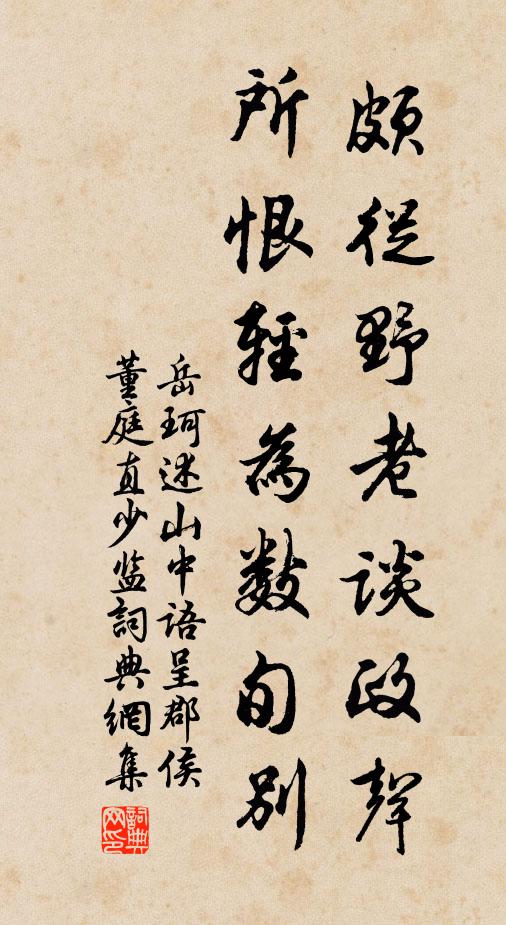 頗從野老談政聲
所恨輕為數旬別
岳珂述山中語呈郡侯
董庭直少監詞典網集
詞典网印